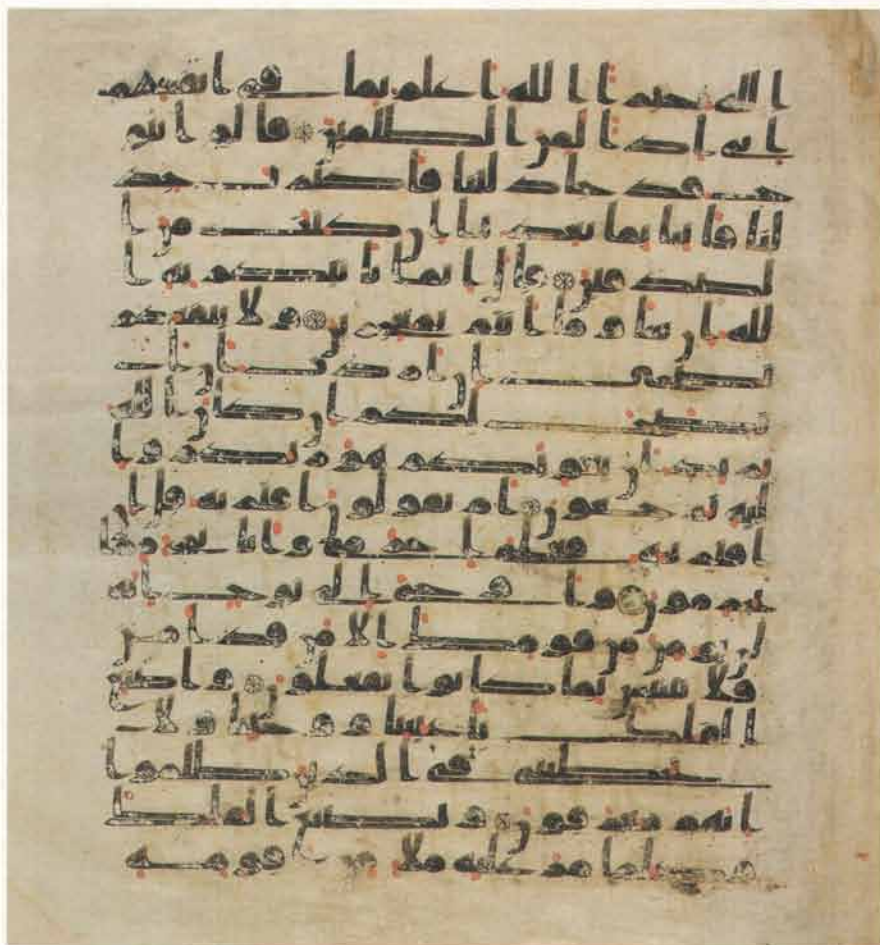 الله خيرا الله اعلم بما في انفسهم
اني اذا لمن الظلمين قالوا ينو
ح قد جادلتنا فاكثرت جد
لنا فاتنا بما تعدنا ان كنت من ا
لصدقين قال انما ياتيكم به ا
لله ان شا وما انتم بمعجزين ولا ينفعكم
نصحي ان اردت ان ا
نصح لكم ان كان الله
يريد ان يغويكم هو ربكم وا
ليه ترجعون ام يقولون افتريه قل ا
ن افتريته فعلي اجرامي وانا بري مما
تجرمون واوحي الى نوح انه
لن يومن من قومك الا من قد امن
فلا تبتئس بما كانوا يفعلون واصنع
الفلك باعيننا ووحينا ولا
تخطبني في الذين ظلموا ا
نهم مغرقون ويصنع الفلك
وكلما مر عليه ملا من قومه